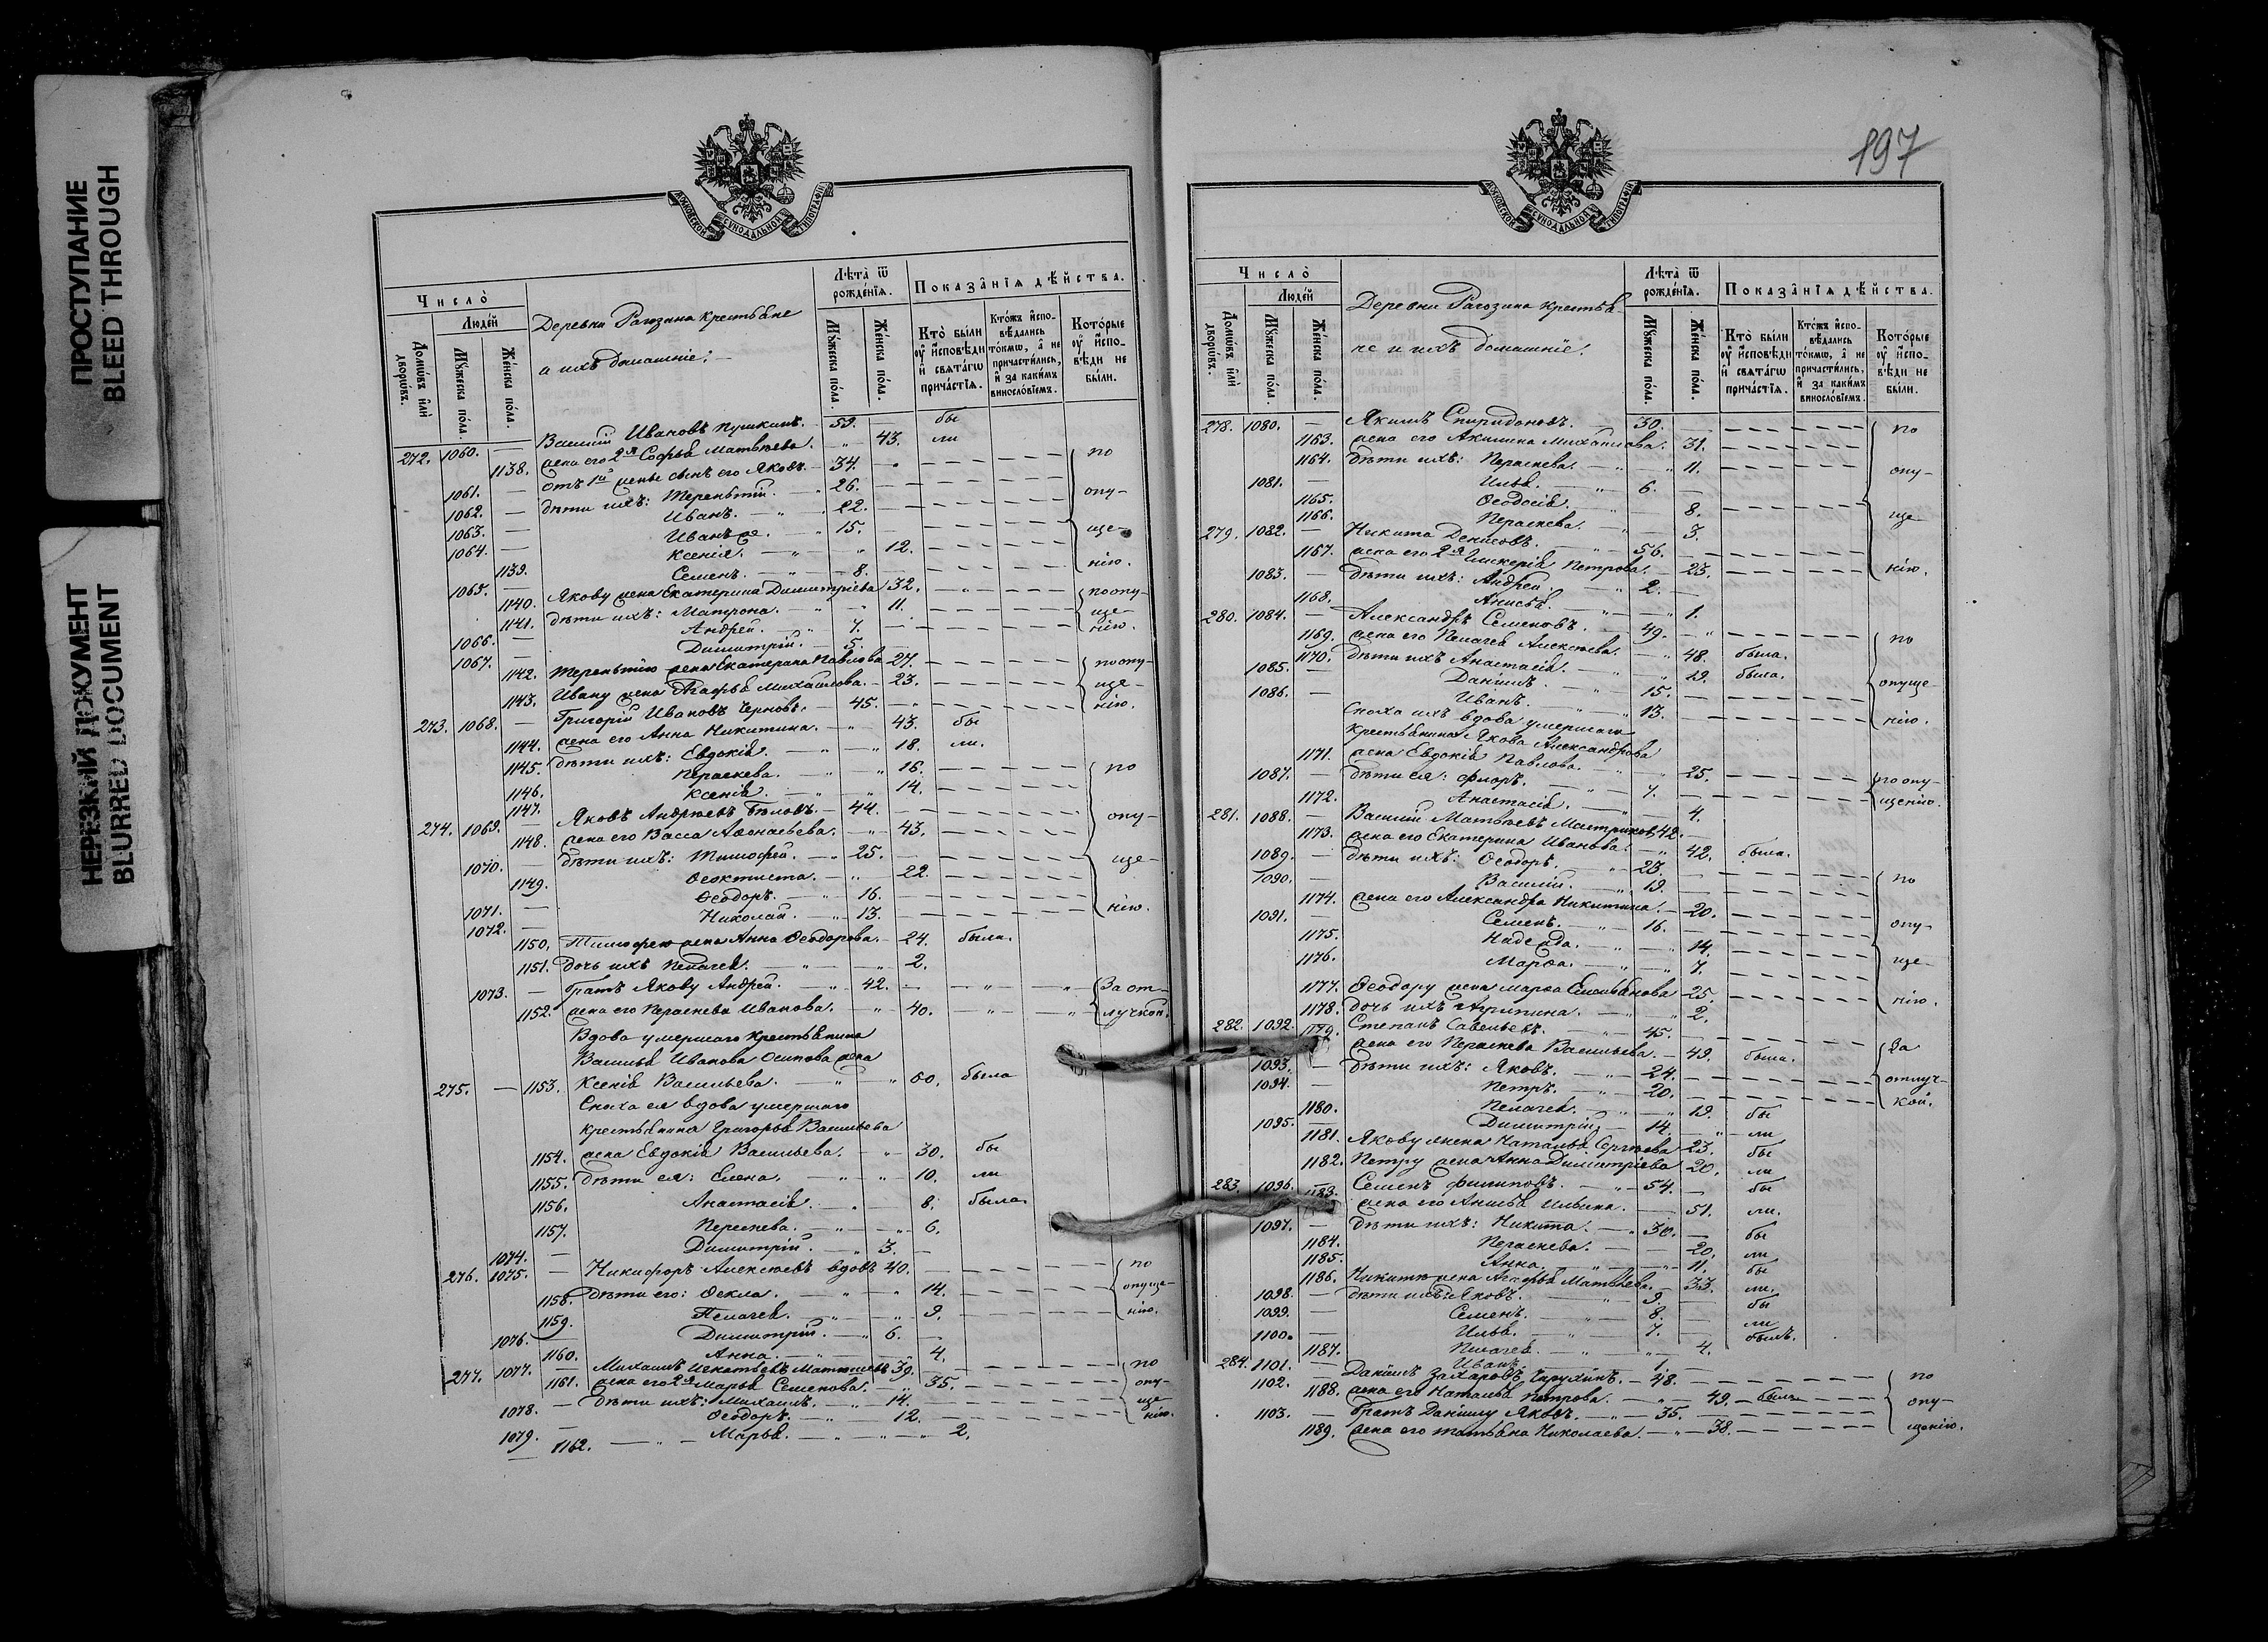 ПРОСТУПАНИЕ
BLEED THROUGH
НЕРЕЗКИЙ ДОКУМЕНТ
BLURRED DOCUMENT
МОСКОВСКОЙ СѴНОДАЛЬНОЙ ТИПОГРАФІИ
Число̀
Людей
Домѡвъ илѝ дворѡвъ.
Мꙋжеска пола.
Женска пола.
Деревни Рагозина крестьяне
и ихъ домашніе:
Лѣта̀ ѿ рожденїѧ.
Мꙋжеска пола.
Женска пола.
Показанїѧ дѣйства.
Кто̀ были ᲂу҆ и҆сповѣди и҆ свѧтагѡ причастїѧ.
Ктожъ и҆сповѣдались токмѡ, а҆ не причастились, и҆ за какимъ винословїемъ.
Которые ᲂу҆ и҆сповѣди не были.
272. 1060. — Василій Ивановъ Пушкинъ. — 59. бы
1138. жена его 2я Софья Матвѣева. — „ 43. ли
1061. — отъ 1й жены сынъ его Яковъ. — 34. по
1062. — дѣти ихъ: Терентій. — „ 26.
1063. — Иванъ. — „ 22. опу-
1064. — Иванъ же. — „ 15. ще-
1139. Ксенія. — „ „ 12.
1065. — Семенъ. — „ 8. нію.
1140. Якову жена Екатерина Димитріева 32. по опу-
1141. дѣти ихъ: Матрона. — „ 11. ще-
1066. — Андрей. „ 7. нію.
1067. — Димитрій. — 5.
1142. Терентію жена Екатерина Павлова 27. по опу-
1143. Ивану жена Агафья Михайлова. — 23. ще-
273. 1068. — Григорій Ивановъ Черновъ. — 45. нію.
1144. жена его Анна Никитина. — „ 43. бы
1145. дѣти ихъ: Евдокія. — „ „ 18. ли.
1146. Параскева. — „ „ 16. по
1147. Ксенія. — „ „ 14.
274. 1069. — Яковъ Андреевъ Бѣловъ. — 44. опу-
1148. жена его Васса Аѳонасьева. — „ 43.
1070. — дѣти ихъ: Тимофей. — „ 25. ще-
1149. Ѳеоктиста. — „ 22.
1071. — Ѳеодоръ. — „ 16.
1072. — Николай. — „ 13. нію.
1150. Тимофею жена Анна Ѳеодорова. — 24. была.
1151. дочь ихъ Пелагея. — „ „ 2.
1073. — Братъ Якову Андрей. — „ 42. За от-
1152. жена его Параскева Иванова. — „ 40. лучкой.
Вдова умершаго крестьянина
Василья Иванова Осипова жена
275. — 1153. Ксенія Васильева. — „ „ 60. была
Сноха ея вдова умершаго
крестьянина Григорья Васильева
1154. жена Евдокія Васильева. — „ 30. бы
1155. дѣти ея: Елена. — „ „ 10. ли
1156. Анастасія. — „ 8. была.
1157. Параскева. — „ „ 6.
1074. — Димитрій. — „ 3.
276. 1075. — Никифоръ Алексѣевъ вдовъ 40. по
1158. дѣти его: Ѳекла. — „ „ 14. опуще-
1159. Пелагея. — „ „ 9. нію.
1076. — Димитрій. — „ 6.
1160. Анна. — „ 4.
277. 1077. — Михаилъ Игнатьевъ 39. по
1161. жена его 2я Марья Семенова. — „ 35. опу-
1078. — дѣти ихъ: Михаилъ. — „ 14. ще-
1079. — Ѳеодоръ. — „ 12. нію.
1162. — „ — Марья. — „ „ 2.
197
МОСКОВСКОЙ СѴНОДАЛЬНОЙ ТИПОГРАФІИ
Число̀
Людей
Домѡвъ илѝ дворѡвъ.
Мꙋжеска пола.
Женска пола.
Деревни Рагозина крестья-
не и ихъ домашніе:
Лѣта̀ ѿ рожденїѧ.
Мꙋжеска пола.
Женска пола.
Показанїѧ дѣйства.
Кто̀ были ᲂу҆ и҆сповѣди и҆ свѧтагѡ причастїѧ.
Ктожъ и҆сповѣдались токмѡ, а҆ не причастились, и҆ за какимъ винословїемъ.
Которые ᲂу҆ и҆сповѣди не были.
278. 1080. — Якимъ Спиридоновъ. — 30. по
1163. жена его Акилина Михайлова. 31.
1164. дѣти ихъ: Параскева. — „ 11. опу-
1081. — Илья. — „ 6.
1165. Ѳеодосія. — „ 8. ще-
1166. Параскева. — „ 3.
279. 1082. — Никита Денисовъ. — „ 56.
1167. жена его 2я Гликерія Петрова. — 23. нію.
1083. — дѣти ихъ: Андрей. — „ 2.
1168. Анисья. — „ 1.
280. 1084. — Александръ Семеновъ. — 49. по
1169. жена его Пелагея Алексѣева. — „ 48. была.
1170. дѣти ихъ Анастасія. — „ 19. была.
1085. — Даніилъ. — „ 15. опуще-
1086. — Иванъ. — „ 13. нію.
Сноха ихъ вдова умершаго
крестьянина Якова Александрова
1171. жена Евдокія Павлова. — „ 25. по опу-
1087. — дѣти ея: Флоръ. — „ 7. щенію.
1172. Анастасія. — „ 4.
281. 1088. — Василій Матвѣевъ 42.
1173. жена его Екатерина Иванова. — „ 42. была.
1089. — дѣти ихъ: Ѳеодоръ. — „ 23. по
1090. — Василій. — „ 19.
1174. жена его Александра Никитина. — 20.
1091. — Семенъ. — „ 16. опу-
1175. Надежда. — „ 14.
1176. Марѳа. — „ 7. ще-
1177. Ѳеодору жена Марѳа Емельянова 25.
1178. дочь ихъ Агрипина. — „ 2. нію.
282. 1092. Степанъ Савельевъ. — „ 45.
1179. жена его Параскева Васильева. — 49. была. За
1093. — дѣти ихъ: Яковъ. — „ 24. отлуч-
1094. — Петръ. — „ 20. кой.
1180. Пелагея. — „ 19. бы
1095. — Димитрій — 14. ли
1181. Якову жена Наталья Сергѣева 23. бы
1182. Петру жена Анна Димитріева 20. ли
283. 1096. Семенъ Филиповъ. — „ 54. бы
1183. жена его Анисья Ильина. — 51. ли.
1097. — дѣти ихъ: Никита. — „ 30. бы
1184. Параскева. — 20. ли
1185. Анна. — „ 11. бы
1186. Никитѣ жена Агафья Матвѣева. — 33. ли.
1098. — дѣти ихъ: Яковъ. — „ 9. бы
1099. — Семенъ. — „ 8. ли
1100. — Илья. — „ 7. былъ.
1187. Пелагея. — „ 4.
1101. — Иванъ. 1.
284. 1102. — Даніилъ Захаровъ 48. по
1188. жена его Наталья Петрова. — „ 49. была
1103. — братъ Даніилу Яковъ. — „ 35. опу-
1189. жена его Татьяна Николаева. — „ 38. щенію.